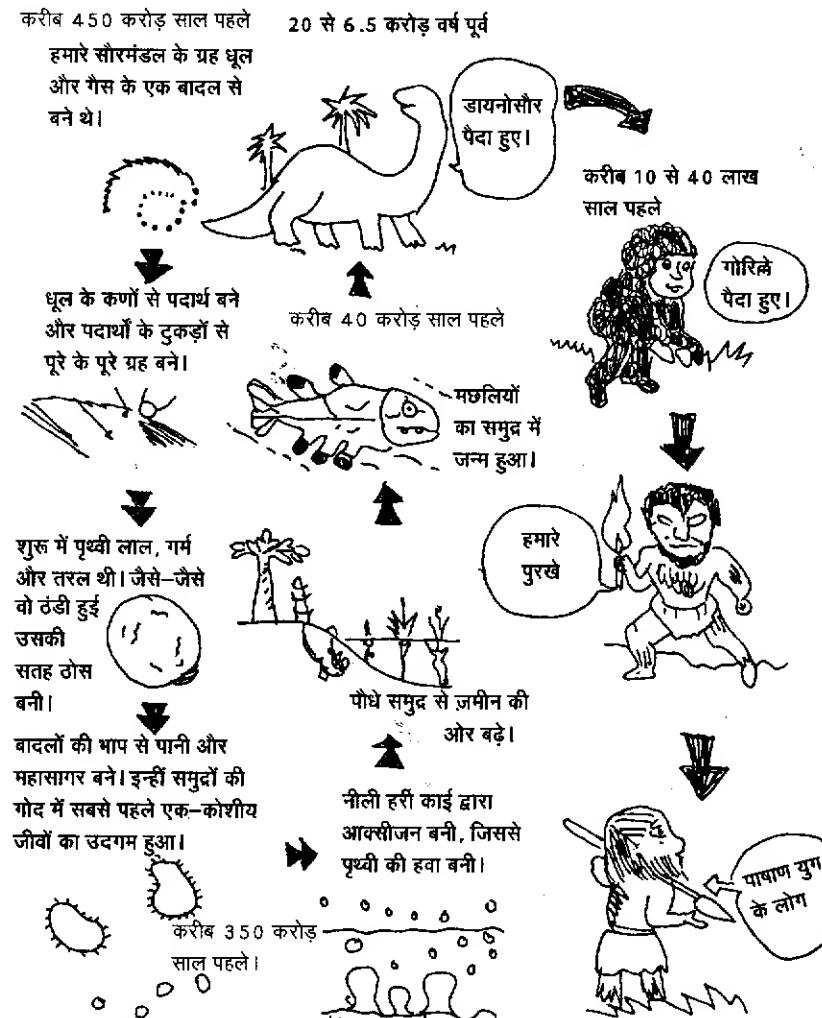 करीब 450 करोड़ साल पहले
हमारे सौरमंडल के ग्रह धूल
और गैस के एक बादल से
बने थे।
धूल के कणों से पदार्थ बने
और पदार्थों के टुकड़ों से
पूरे के पूरे ग्रह बने।
शुरू में पृथ्वी लाल, गर्म
और तरल थी। जैसे–जैसे
वो ठंडी हुई
उसकी
सतह ठोस
बनी।
बादलों की भाप से पानी और
महासागर बने। इन्हीं समुद्रों की
गोद में सबसे पहले एक–कोशीय
जीवों का उदगम हुआ।
करीब 350 करोड़
साल पहले।
नीली हरी काई द्वारा
आक्सीजन बनी, जिससे
पृथ्वी की हवा बनी।
पौधे समुद्र से ज़मीन की
ओर बढ़े।
करीब 40 करोड़ साल पहले
मछलियों
का समुद्र में
जन्म हुआ।
20 से 6.5 करोड़ वर्ष पूर्व
डायनोसौर
पैदा हुए।
करीब 10 से 40 लाख
साल पहले
गोरिल्ले
पैदा हुए।
हमारे
पुरखे
पाषाण युग
के लोग